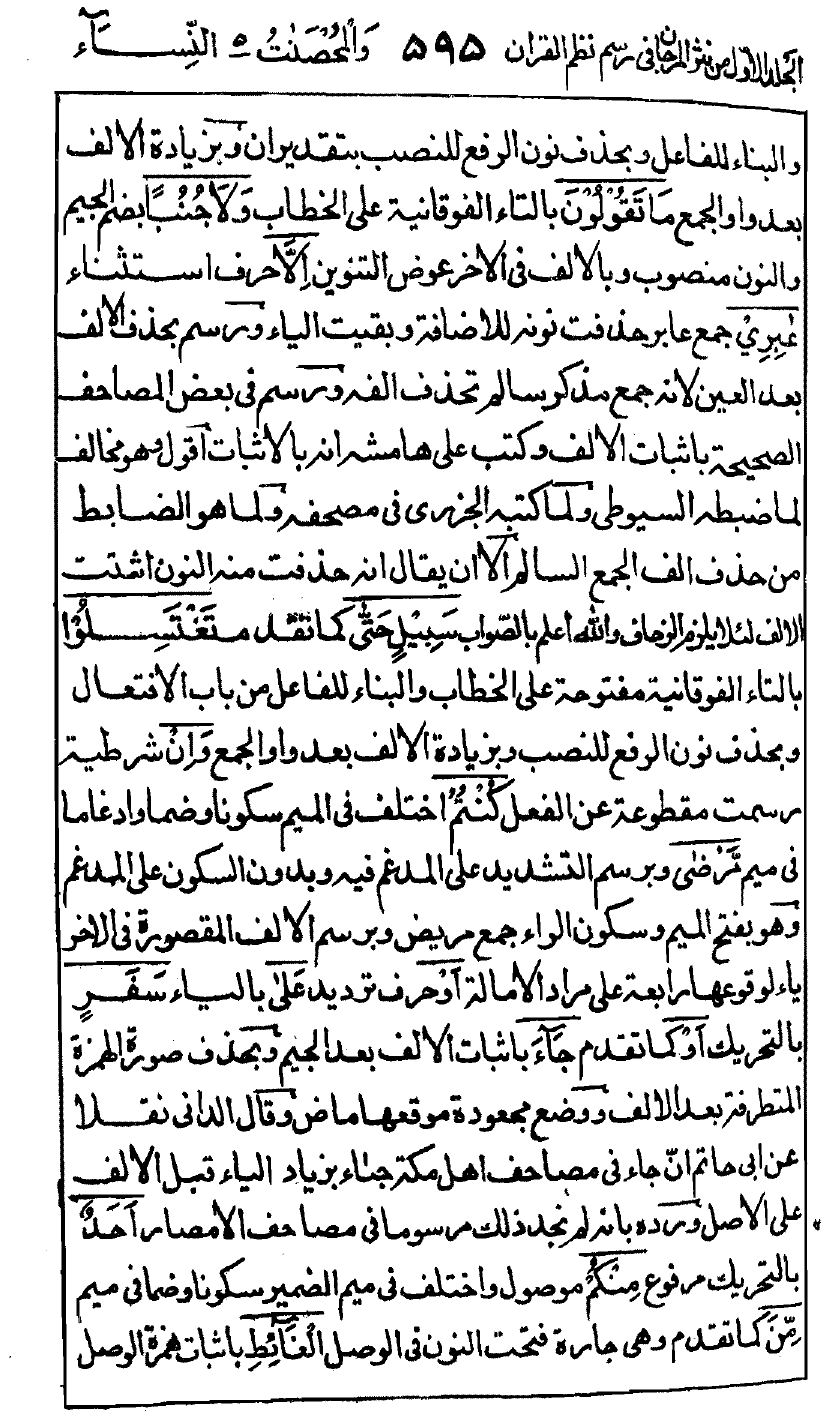 الجلد الاول من نثر المرجان فى رسم نظم القران ۵۹۵ وَالْمُحْصَنٰتُ ٥ النِّسَآء
والبناء للفاعل وبحذف نون الرفع للنصب بتقدير ان وبزيادة الالف
بعد واو الجمع مَا تَقُوْلُوْنَ بالتاء الفوقانية على الخطاب وَلَا جُنُبًا بضم الجيم
والنون منصوب وبالالف فى الاخر عوض التنوين اِلَّا حرف استثناء
عٰبِرِيْ جمع عابر حذفت نونه للاضافة وبقيت الياء ورسم بحذف الالف
بعد العين لانه جمع مذكر سالم تحذف الفه ورسم فى بعض المصاحف
الصحيحة باثبات الالف وكتب على هامشه انه بالاثبات اقول وهو مخالف
لما ضبطه السيوطى ولما كتبه الجزرى فى مصحفه ولما هو الضابط
من حذف الف الجمع السالم الا ان يقال انه حذفت منه النون اثبتت
الالف لئلا يلزم الزحاف والله اعلم بالصواب سَبِيْلٍ حَتّٰى كما تقدم تَغْتَسِلُوْا
بالتاء الفوقانية مفتوحة على الخطاب والبناء للفاعل من باب الافتعال
وبحذف نون الرفع للنصب وبزيادة الالف بعد واو الجمع وَاِنْ شرطية
رسمت مقطوعة عن الفعل كُنْتُمْ اختلف فى الميم سكونا وضما وادغاما
فى ميم مَّرْضٰى وبرسم التشديد على المدغم فيه وبدون السكون على المدغم
وهو بفتح الميم وسكون الراء جمع مريض وبرسم الالف المقصورة فى الاخر
ياء لوقوعها رابعة على مراد الامالة اَوْ حرف ترديد عَلٰى بالياء سَفَرٍ
بالتحريك اَوْ كما تقدم جَآءَ باثبات الالف بعد الجيم وبحذف صورة الهمزة
المتطرفة بعد الالف ووضع مجعودة موقعها ماض وقال الدانى نقلا
عن ابى حاتم انّ جاء فى مصاحف اهل مكة جياء بزياد الياء قبل الالف
على الاصل ورده بانه لم نجد ذلك مرسوما فى مصاحف الامصار اَحَدٌ
بالتحريك مرفوع مِنْكُمْ موصول واختلف فى ميم الضمير سكونا وضما فى ميم
مِّنَ كما تقدم وهى جارة فتحت النون فى الوصل الْغَآئِطِ باثبات همزة الوصل